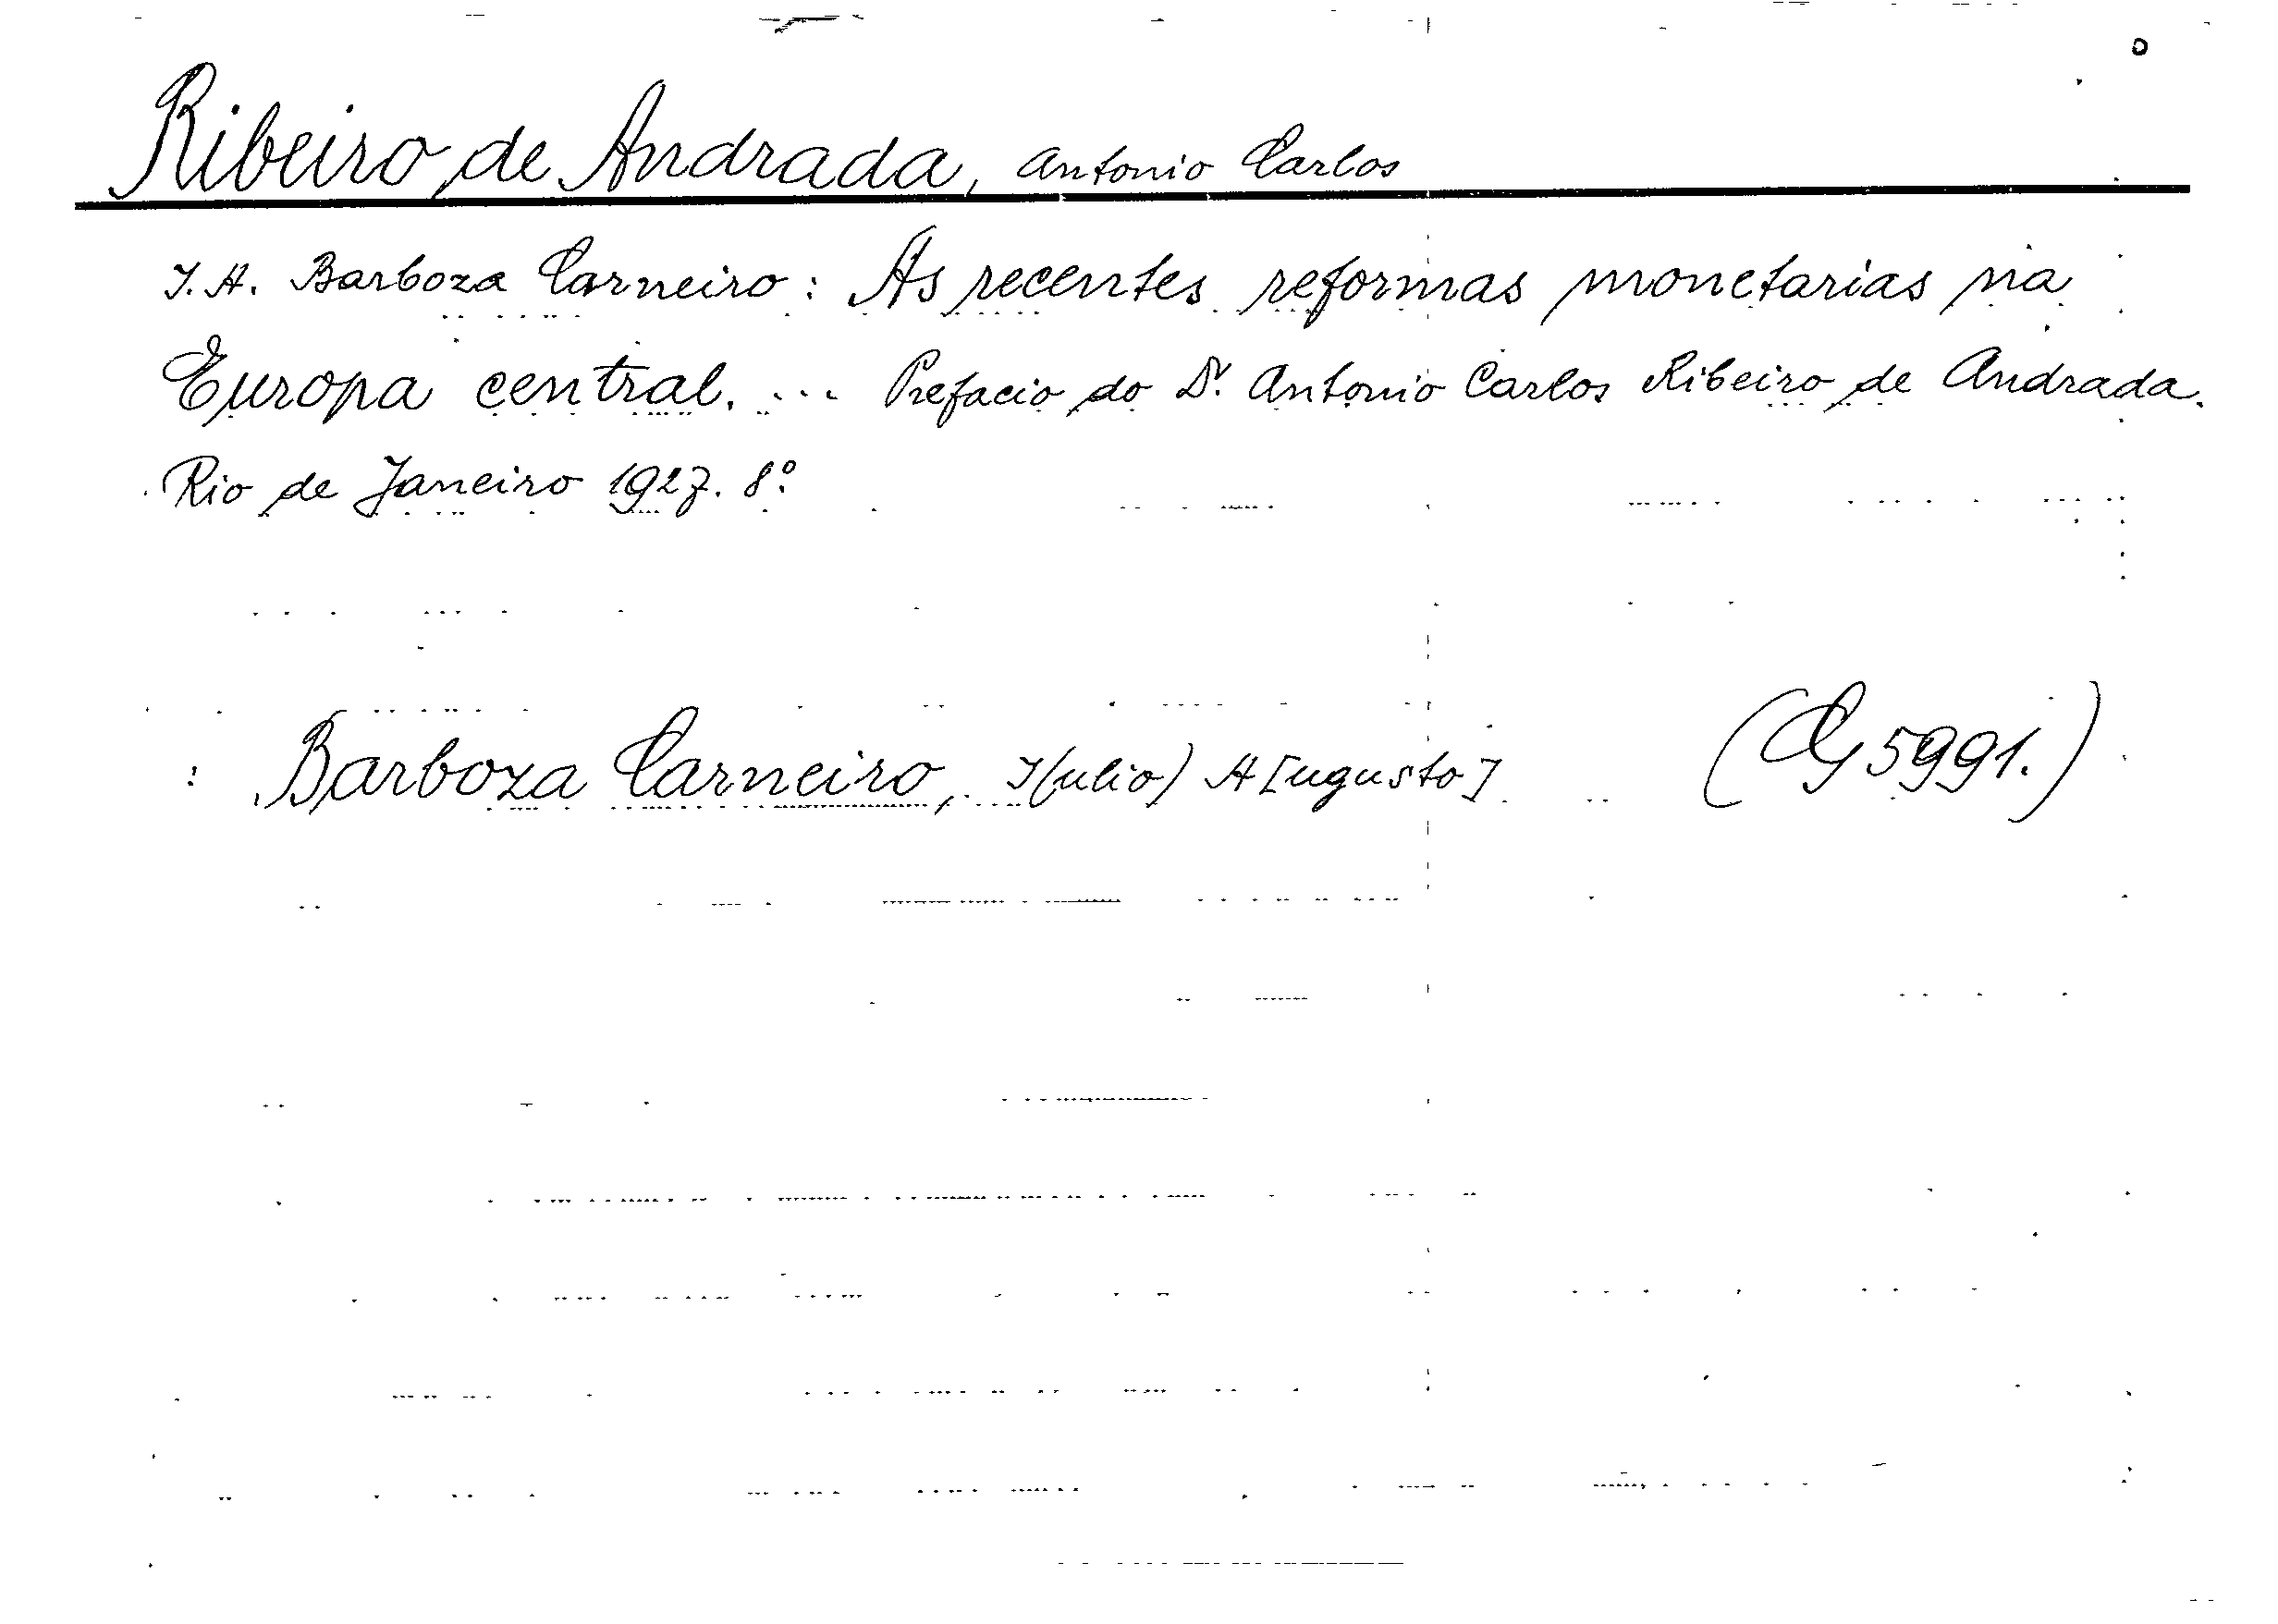 Ribeiro de Andrada, Antonio Carlos
J. A. Barboza Carneiro: As recentes reformas monetarias na
Europa central. ... Prefacio do Dr. Antonio Carlos Ribeiro de Andrada.
Rio de Janeiro 1927. 8º
: Barboza Carneiro, J(ulio) A[ugusto] (Oy 5991.)